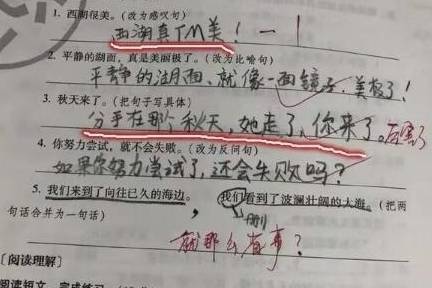 1. 西湖很美。(改为感叹句)
西湖真TM美！一1
2. 平静的湖面,真是美丽极了。(改为比喻句)
平静的湖面、就像一面镜子,美极了!
3. 秋天来了。(把句子写具体)
分手在那个秋天,她走了,你来了。厉害了
4. 你努力尝试,就不会失败。(改为反问句)
如果你努力尝试了,还会失败吗?
5. 我们来到了向往已久的海边。我们看到了波澜壮阔的大海。(把两
句话合并为一句话) , 删
就那么省事?
〔阅读理解〕
阅读短文,完成练习。